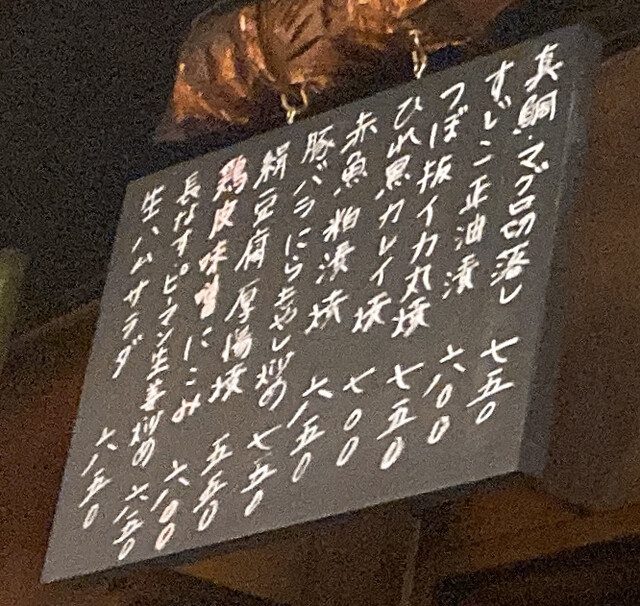 真鯛・マグロ切落し 七五〇
すじこ正油漬 六〇〇
つぼ抜イカ丸焼 七五〇
ひれ黒カレイ焼 七〇〇
赤魚粕漬焼 六五〇
豚バラにらもやし炒め 七五〇
絹豆腐厚揚焼 五五〇
鶏皮味噌にこみ 六〇〇
長なすピーマン生姜炒め 六五〇
生ハムサラダ 六五〇